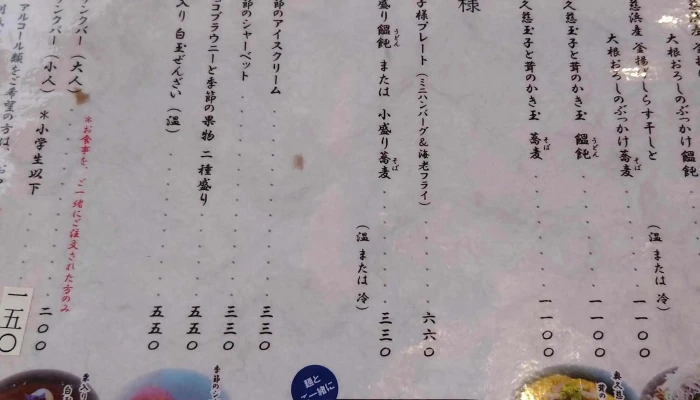 大根おろしのぶっかけ饂飩
(温 または 冷)
慈浜産 釜揚げしらす干しと
大根おろしのぶっかけ蕎麦
そば
一一〇〇
久慈玉子と茸のかき玉 饂飩
うどん
一一〇〇
久慈玉子と茸のかき玉 蕎麦
そば
一一〇〇
様
子様プレート(ミニハンバーグ&海老フライ)
六六〇
盛り饂飩 または 小盛り蕎麦
うどん
そば
(温 または 冷)
三三〇
節のアイスクリーム
三三〇
節のシャーベット
三三〇
コブラウニーと季節の果物 二種盛り
五五〇
入り 白玉ぜんざい(温)
五五〇
*お食事を、ご一緒にご注文された方のみ
リンクバー(大人)
二〇〇
リンクバー(小人) *小学生以下
一五〇
アルコール類をご希望の方は、
麺と
ご一緒に
奥久慈
季節のシ
栗入り
白